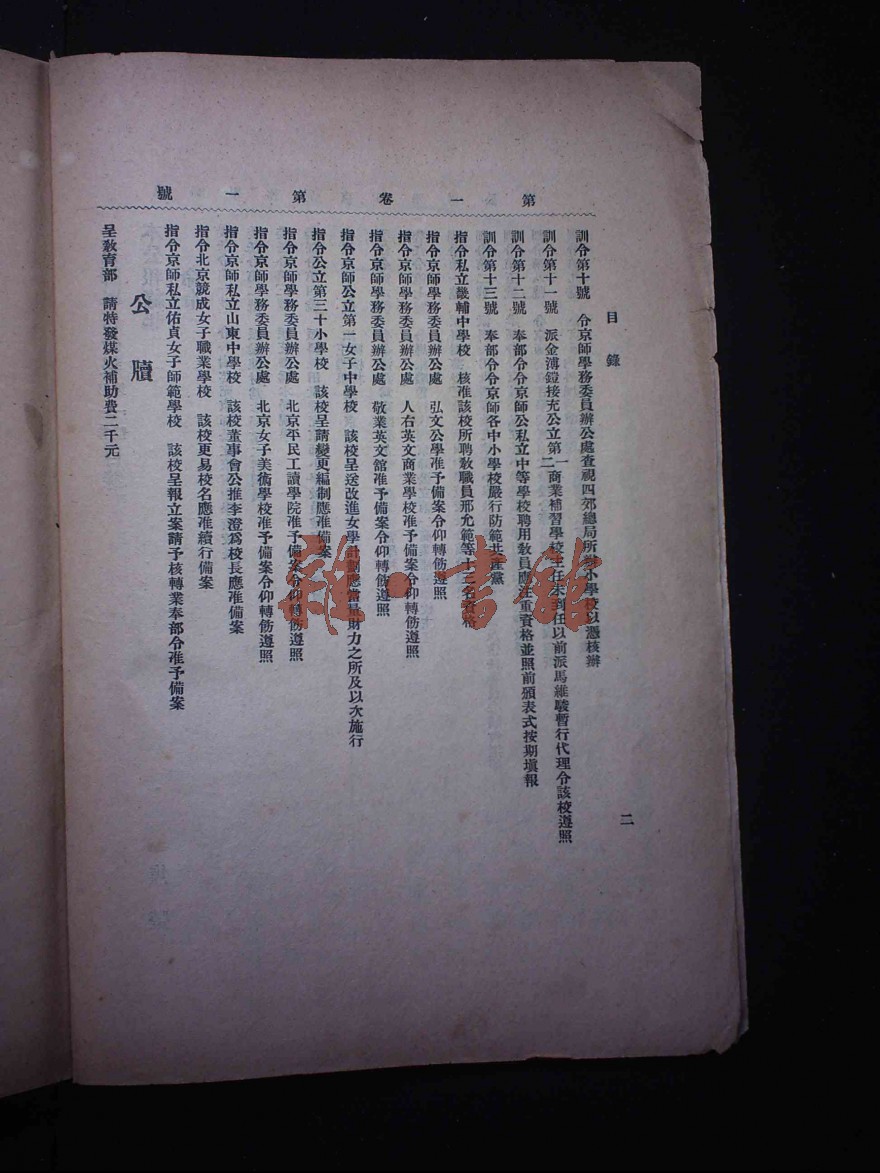 第一卷第一號
目錄
二
訓令第十號　令京師學務委員辦公處查視四郊總局所 小學校以憑核辦
訓令第十一號　派金溥鎧接充公立第 商業補習學校主任未到任以前派馬維駿暫行代理令該校遵照
訓令第十二號　奉部令令京師公私立中等學校聘用教員應注重資格並照前頒表式按期填報
訓令第十三號　奉部令令京師各中小學校嚴行防範共產黨
指令私立畿輔中學校　核准該校所聘教職員邢允範等十二名資格
指令京師學務委員辦公處　弘文公學准予備案令仰轉飭遵照
指令京師學務委員辦公處　人右英文商業學校准予備案令仰轉飭遵照
指令京師學務委員辦公處　敬業英文館准予備案令仰轉飭遵照
指令京師公立第一女子中學校　該校呈送改進女學計劃應審量財力之所及以次施行
指令公立第三十小學校　該校呈請變更編制應准備案
指令京師學務委員辦公處　北京平民工讀學院准予備案令仰轉飭遵照
指令京師學務委員辦公處　北京女子美術學校准予備案令仰轉飭遵照
指令京師私立山東中學校　該校董事會公推李澄為校長應准備案
指令北京競成女子職業學校　該校更易校名應准續行備案
指令京師私立佑貞女子師範學校　該校呈報立案請予核轉業奉部令准予備案
公牘
呈教育部　請特發煤火補助費二千元
雜·書館